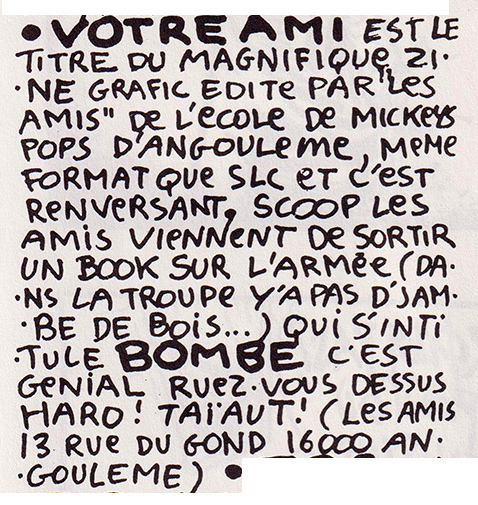 • VOTRE AMI EST LE
TITRE DU MAGNIFIQUE ZI·
·NE GRAFIC EDITE PAR "LES
AMIS" DE L'ECOLE DE MICKEYS
POPS D'ANGOULEME, MEME
FORMAT QUE SLC ET C'EST
RENVERSANT, SCOOP LES
AMIS VIENNENT DE SORTIR
UN BOOK SUR L'ARMÉE (DA·
·NS LA TROUPE Y'A PAS D'JAM·
·BE DE BOIS...) QUI S'INTI
·TULE BOMBE C'EST
GENIAL RUEZ·VOUS DESSUS
HARO! TAÏAUT! (LES AMIS
13 RUE DU GOND 16000 AN·
·GOULEME) •